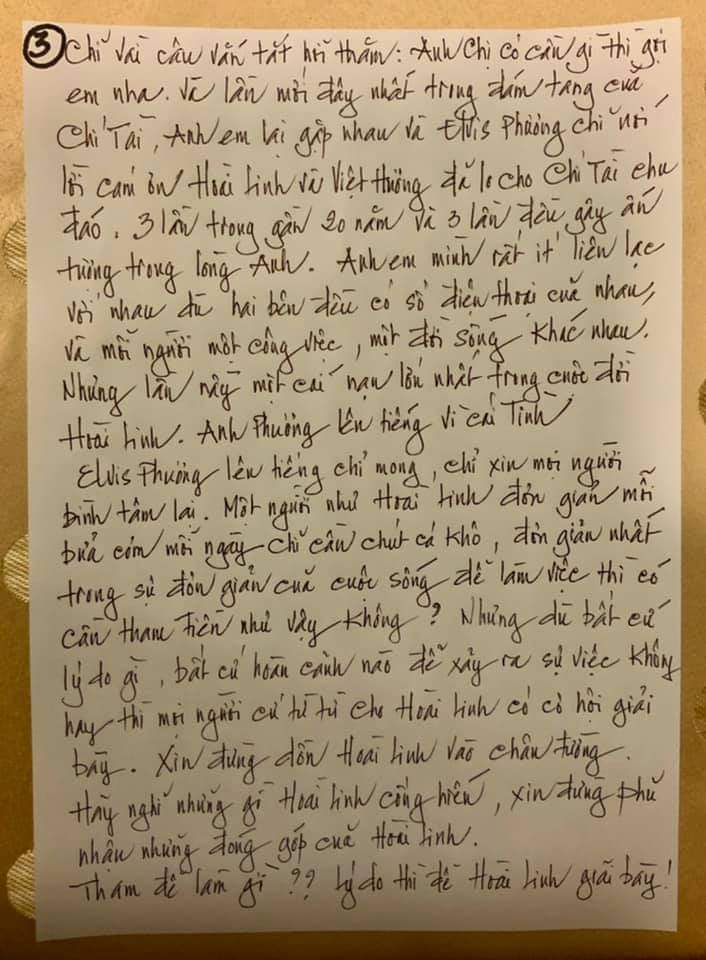 ③ Chỉ vài câu vắn tắt hỏi thăm: Anh Chị có cần gì thì gọi
em nha. Và lần mới đây nhất trong đám tang của
Chí Tài, Anh em lại gặp nhau và Elvis Phương chỉ nói
lời cám ơn Hoài Linh và Việt Hương đã lo cho Chí Tài chu
đáo. 3 lần trong gần 20 năm và 3 lần đều gây ấn
tượng trong lòng Anh. Anh em mình rất ít liên lạc
với nhau dù hai bên đều có số điện thoại của nhau,
và mỗi người một công việc, một đời sống khác nhau.
Nhưng lần này một cái nạn lớn nhất trong cuộc đời
Hoài Linh. Anh Phương lên tiếng vì cái Tình
Elvis Phương lên tiếng chỉ mong, chỉ xin mọi người
bình tâm lại. Một người như Hoài Linh đơn giản mỗi
bữa cơm mỗi ngày chỉ cần chút cá khô, đơn giản nhất
trong sự đơn giản của cuộc sống để làm việc thì có
cần tham tiền như vậy không? Nhưng dù bất cứ
lý do gì, bất cứ hoàn cảnh nào để xảy ra sự việc không
hay thì mọi người cứ từ từ cho Hoài Linh có cơ hội giải
bày. Xin đừng dồn Hoài Linh vào chân tường.
Hãy nghĩ những gì Hoài Linh cống hiến, xin đừng phủ
nhận những đóng góp của Hoài Linh.
Tham để làm gì?? Lý do thì để Hoài Linh giải bày!